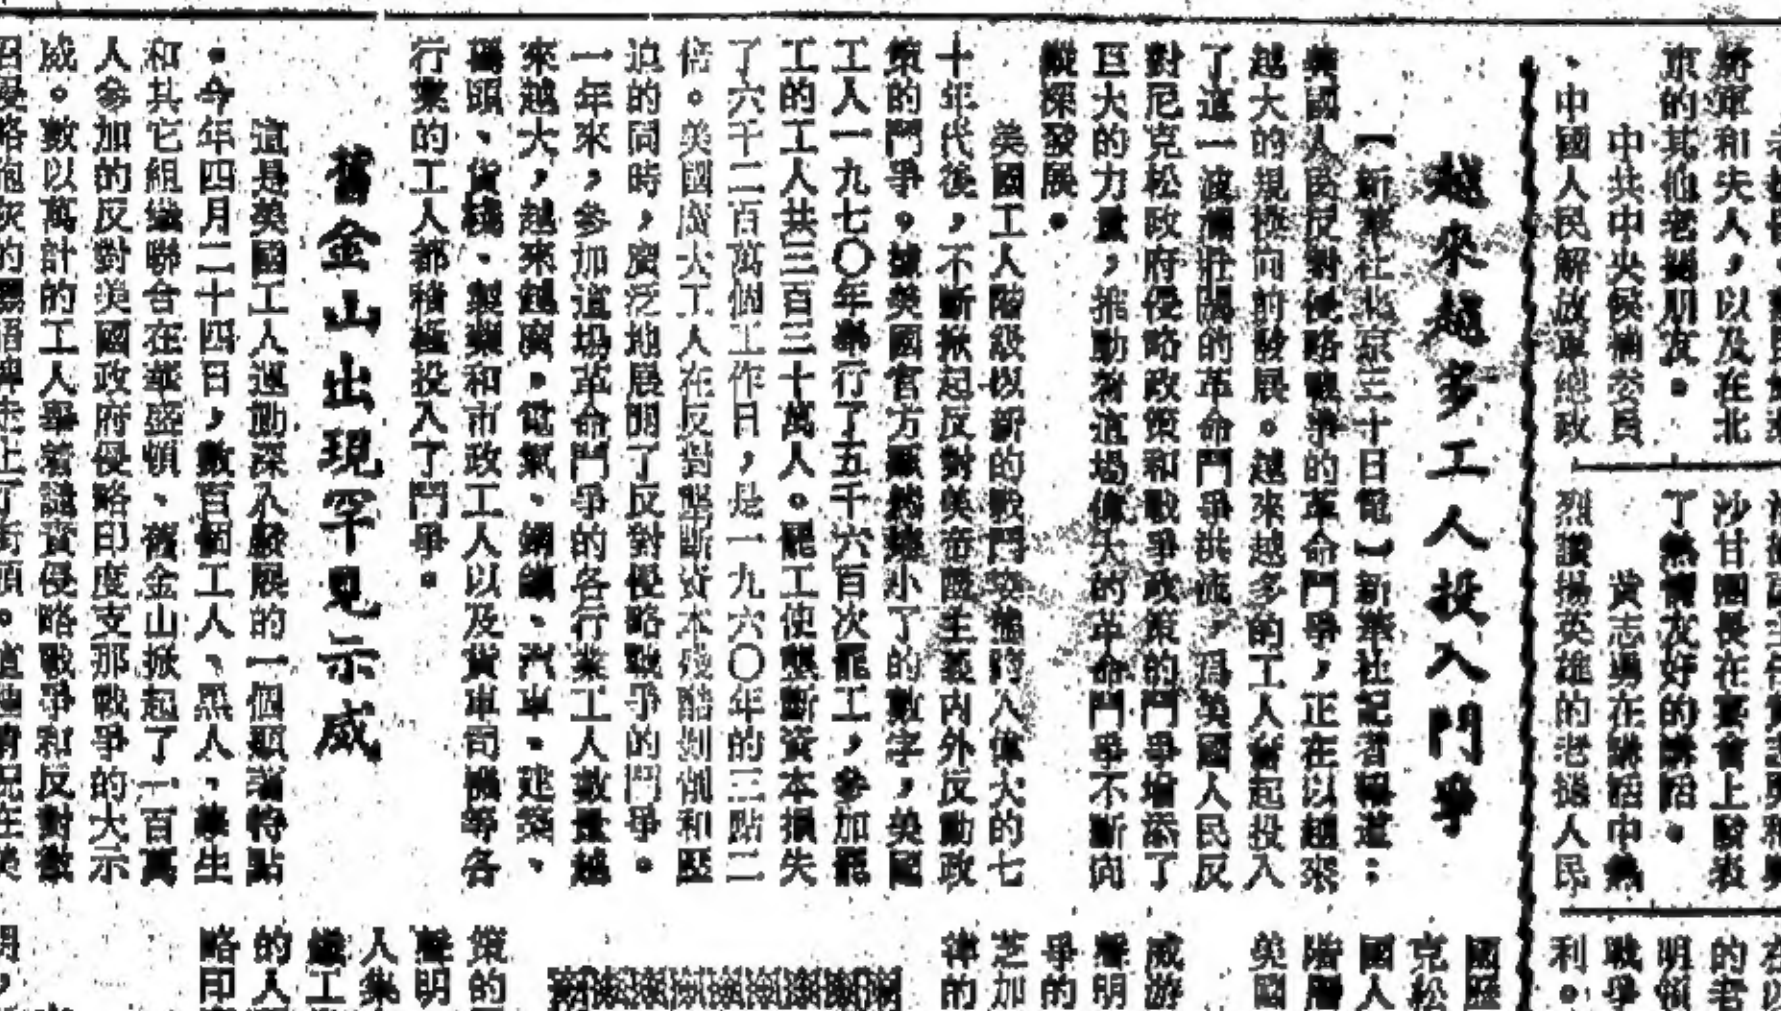 將軍和夫人，以及在北
京的其他老撾朋友。
中共中央候補委員
、中國人民解放軍總政
沙甘團長在宴會上發表
了熱情友好的講話。
黃志勇在講話中熱
烈讚揚英雄的老撾人民
越來越多工人投入鬥爭
【新華社北京三十日電】新華社記者報道：
美國人民反對侵略戰爭的革命鬥爭，正在以越來
越大的規模向前發展。越來越多的工人奮起投入
了這一波瀾壯闊的革命鬥爭洪流，爲美國人民反
對尼克松政府侵略政策和戰爭政策的鬥爭增添了
巨大的力量，推動着這場偉大的革命鬥爭不斷向
縱深發展。
美國工人階級以新的戰鬥姿態跨入偉大的七
十年代後，不斷掀起反對美帝國主義內外反動政
策的鬥爭。據美國官方嚴重縮小了的數字，美國
工人一九七〇年舉行了五千六百次罷工，參加罷
工的工人共三百三十萬人。罷工使壟斷資本損失
了六千二百萬個工作日，是一九六〇年的三點二
倍。美國廣大工人在反對壟斷資本殘酷剝削和壓
迫的同時，廣泛地展開了反對侵略戰爭的鬥爭。
一年來，參加這場革命鬥爭的各行業工人數量越
來越大，越來越廣。電氣、鋼鐵、汽車、建築、
碼頭、貨棧、製藥和市政工人以及貨車司機等各
行業的工人都積極投入了鬥爭。
舊金山出現罕見示威
這是美國工人運動深入發展的一個顯著特點
。今年四月二十四日，數百個工人、黑人、學生
和其它組織聯合在華盛頓、舊金山掀起了一百萬
人參加的反對美國政府侵略印度支那戰爭的大示
威。數以萬計的工人舉着譴責侵略戰爭和反對徵
國
克松
國人
階層
美國
威游
聲明
爭的
芝加
律的
策的
聲明
人集
織工
的人
略印